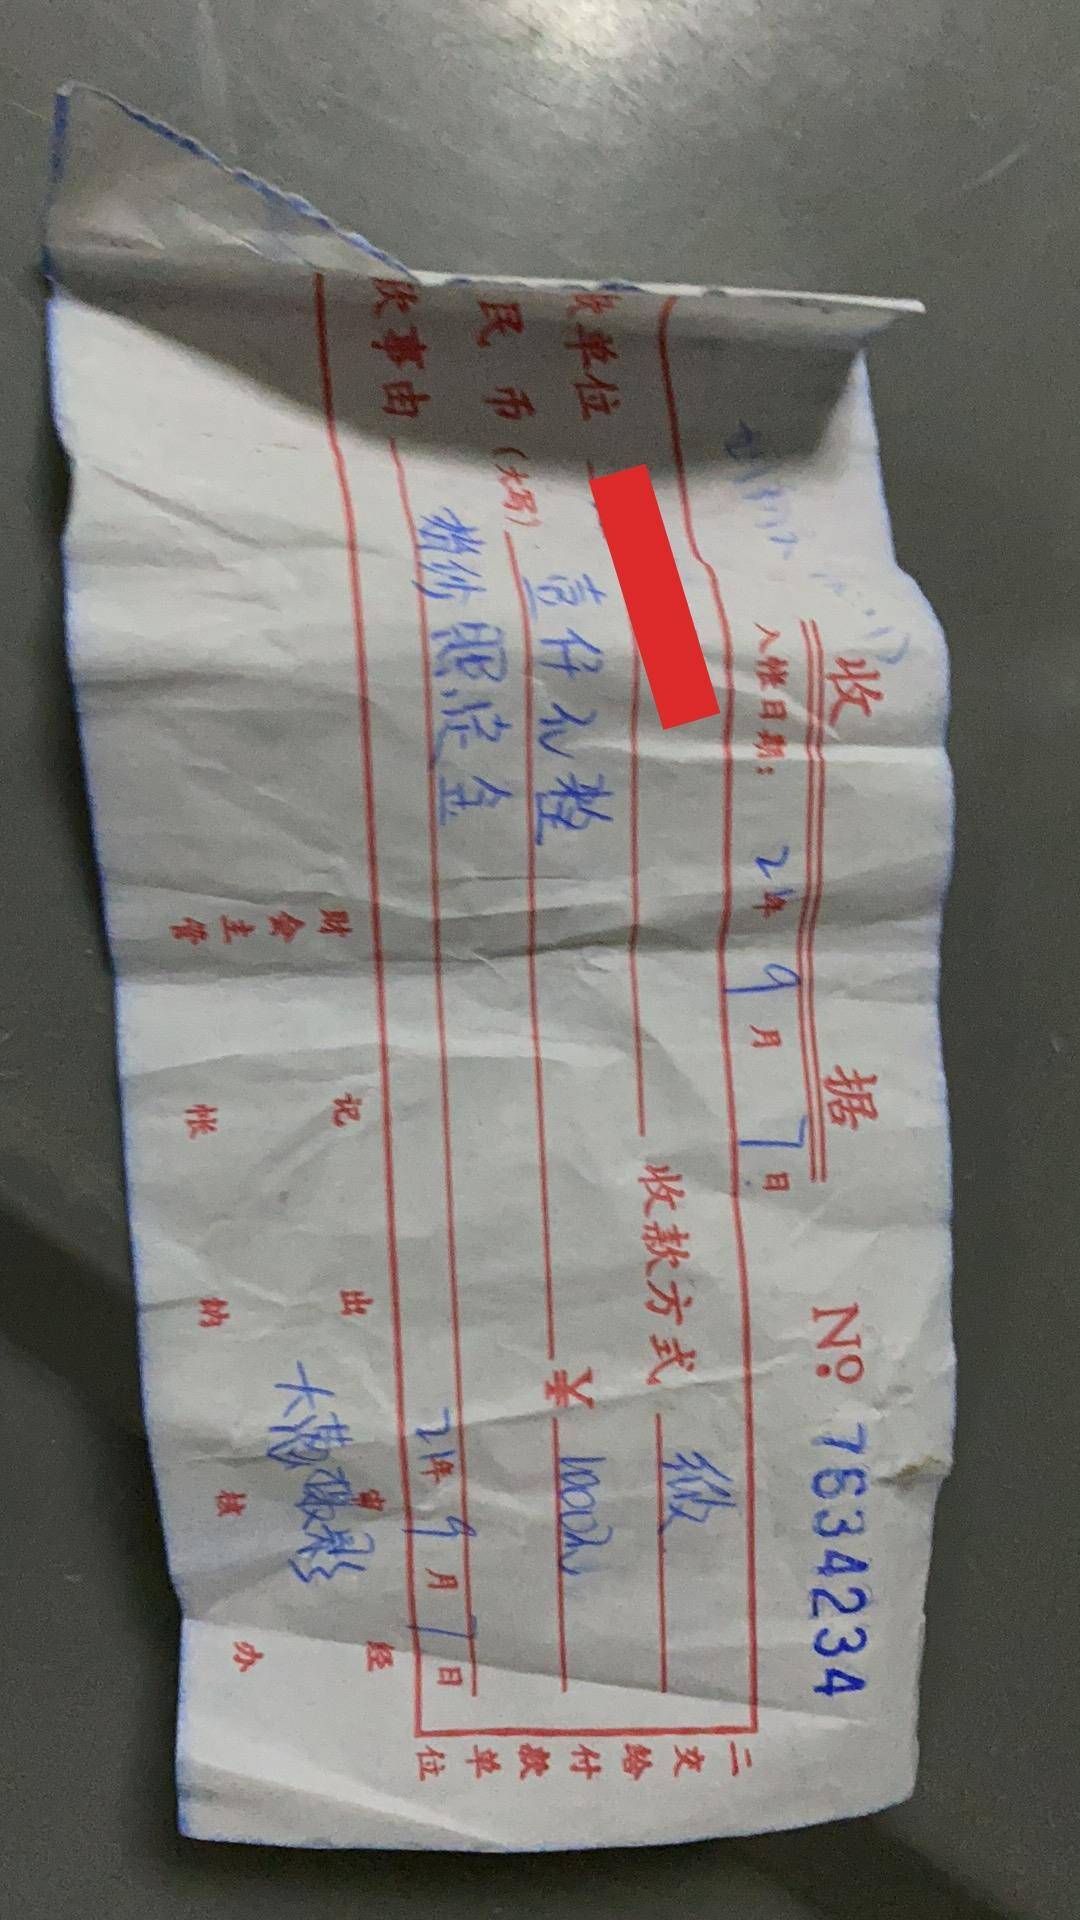 收 据 № 7634234
入帐日期： 21年 9月 7日
单位 收款方式 微
民 币（大写） 壹仟元整 ¥ 1000元
事由 婚纱照定金
21年 9月 7日
二交给付款单位
财会主管 记帐 出纳 审核 经办
摄影